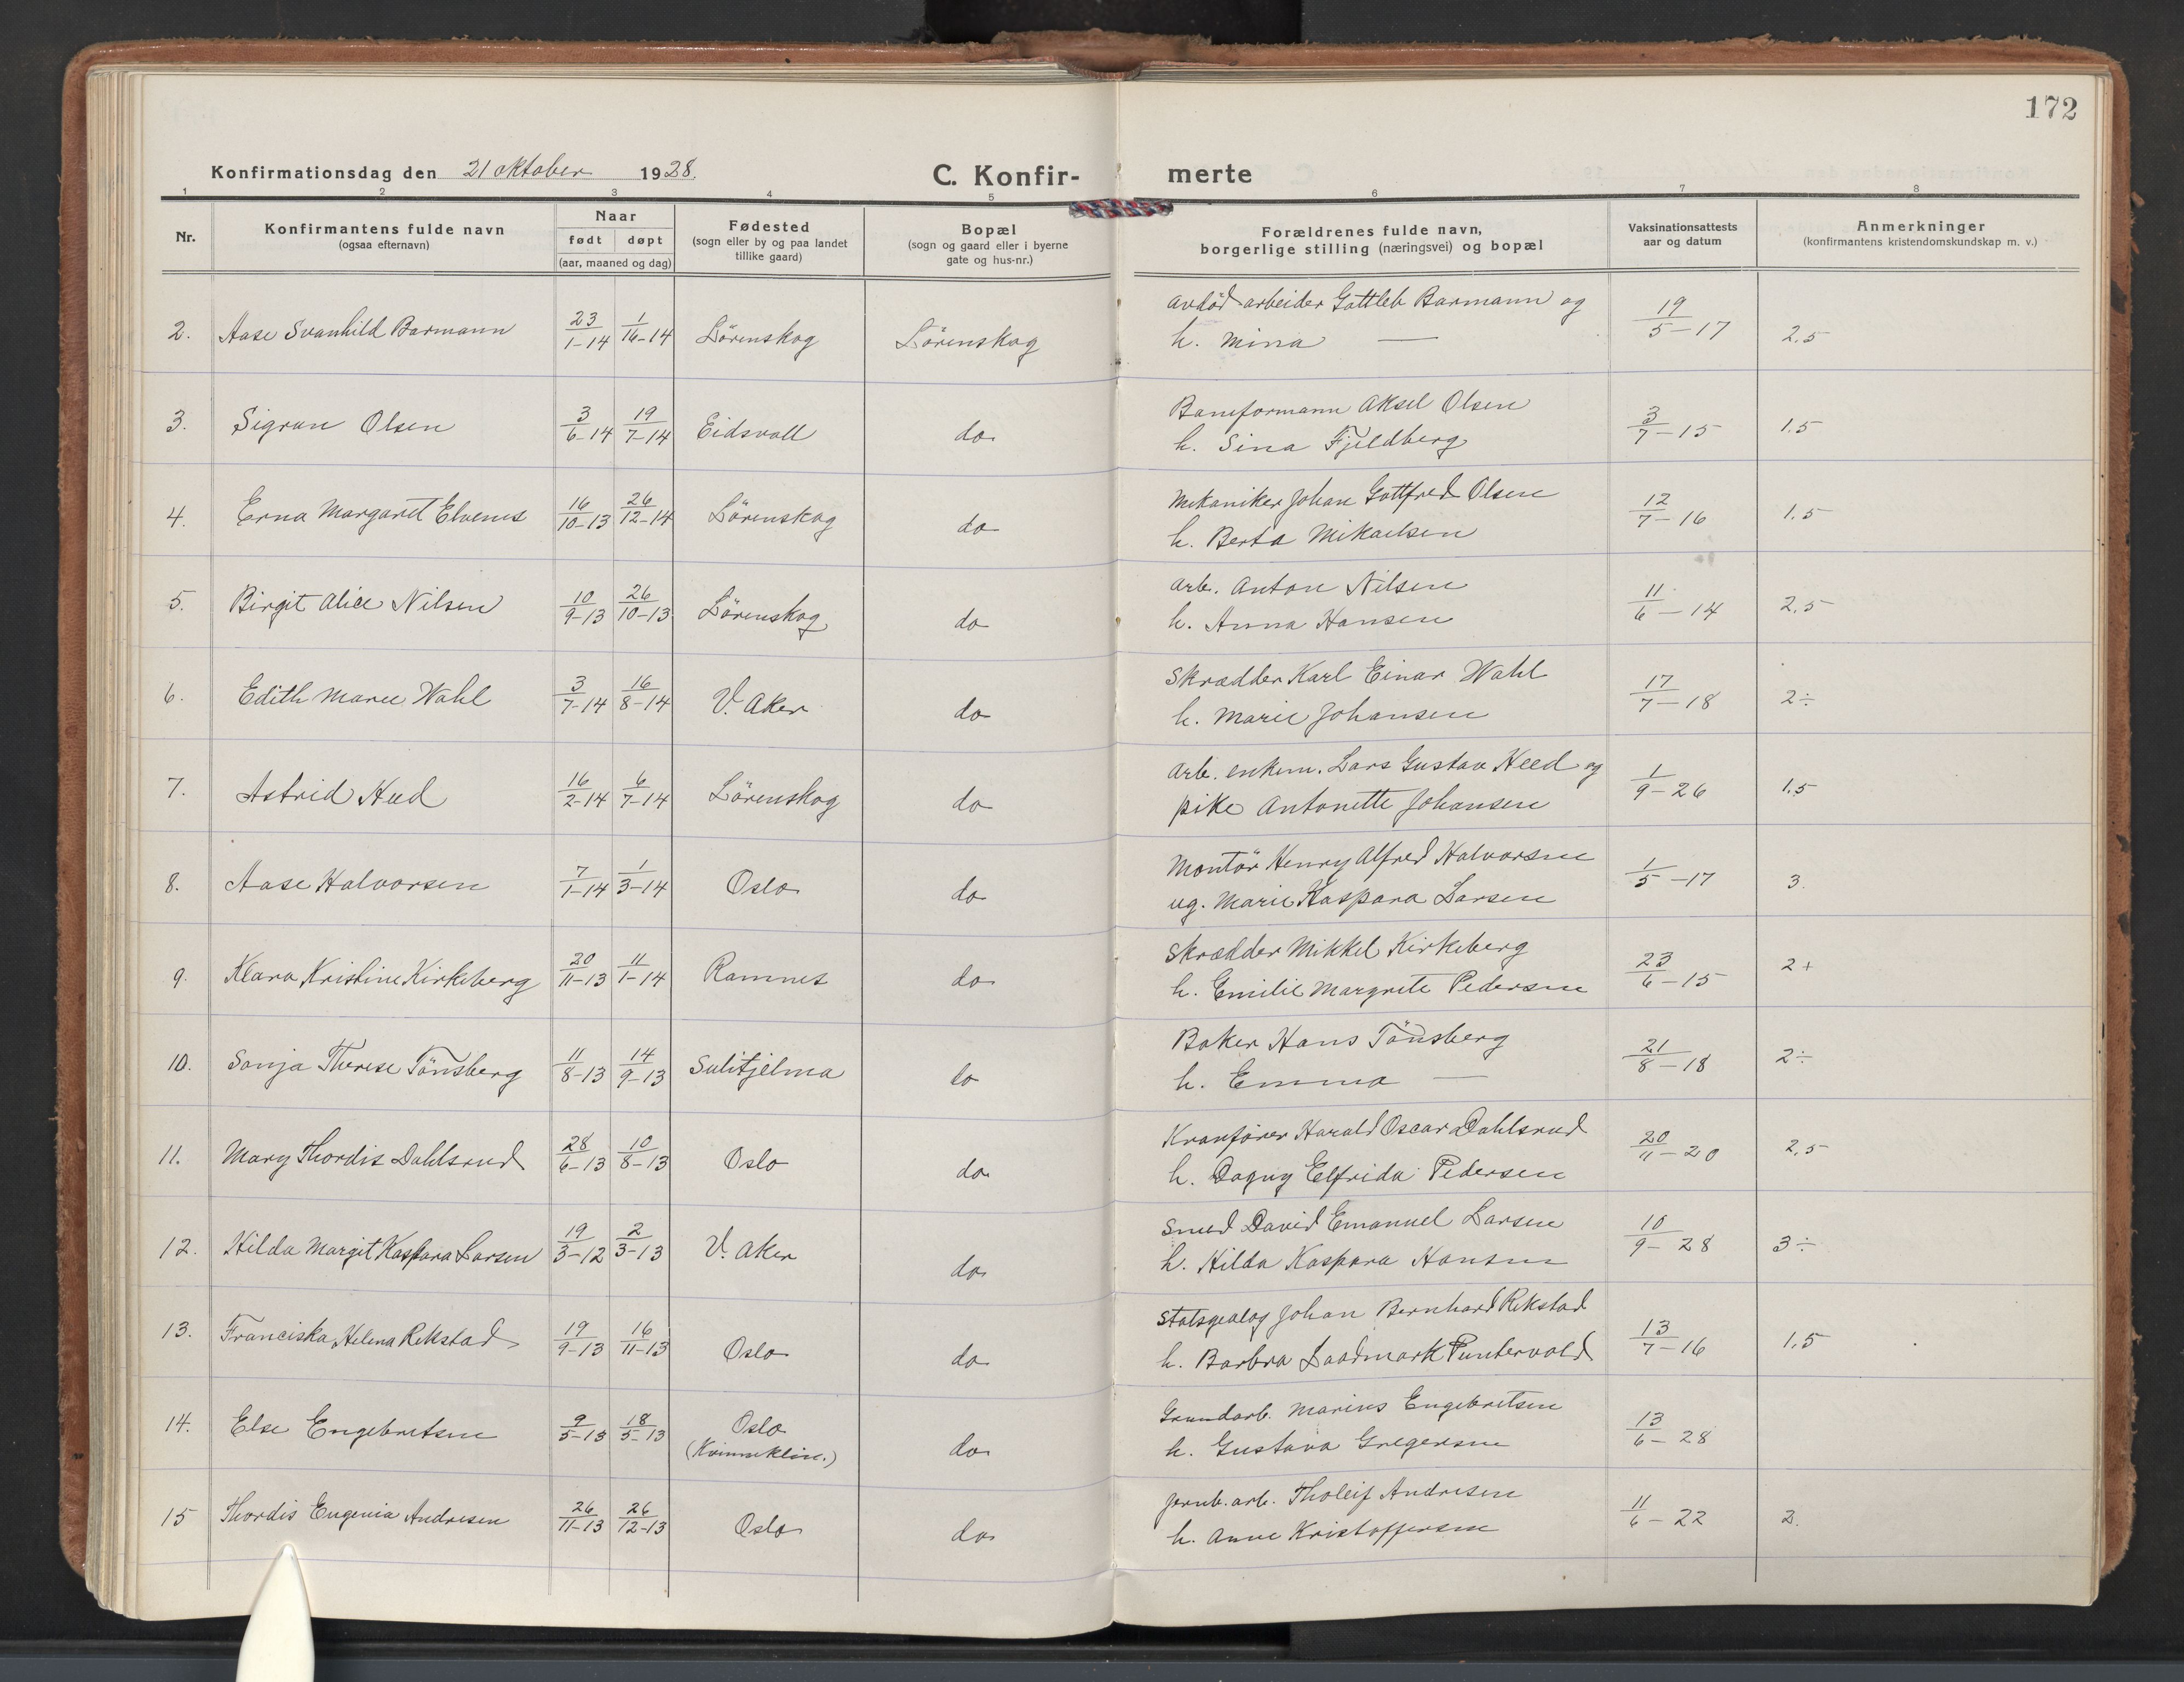 172
Konfirmationsdag den 21 oktober 1928.
C. Konfir- merte
1 2 3 4 5 6 7 8
Nr.
Konfirmantens fulde navn
(ogsaa efternavn)
Naar
født døpt
(aar, maaned og dag)
Fødested
(sogn eller by og paa landet
tillike gaard)
Bopæl
(sogn og gaard eller i byerne
gate og hus-nr.)
Forældrenes fulde navn,
borgerlige stilling (næringsvei) og bopæl
Vaksinationsattests
aar og datum
Anmerkninger
(konfirmantens kristendomskundskap m. v.)
2. Aase Svanhild Barmann 23/1-14 1/16-14 Lörenskog Lörenskog avdöd arbeider Gottleb Barmann og 19/5-17 2,5
h. Mina —
3. Sigrun Olsen 3/6-14 19/7-14 Eidsvoll do Baneformann Aksel Olsen 3/7-15 1.5
h. Sina Fjeldberg
4. Erna Margaret Elvenes 16/10-13 26/12-14 Lörenskog do Mekaniker Johan Gottfred Olsen 12/7-16 1.5
h. Berta Mikaelsen
5. Birgit Alice Nilsen 10/9-13 26/10-13 Lörenskog do arb. Anton Nilsen 11/6-14 2,5
h. Anna Hansen
6. Edith Marie Wahl 3/7-14 16/8-14 V. Aker do Skrædder Karl Einar Wahl 17/7-18 2÷
h. Marie Johansen
7. Astrid Heed 16/2-14 6/7-14 Lörenskog do Arb. enkem. Lars Gustav Heed og 1/9-26 1,5
pike Antonette Johansen
8. Aase Halvorsen 7/1-14 1/3-14 Oslo do Montör Henry Alfred Halvorsen 1/5-17 3.
ug. Marie Kaspara Larsen
9. Klara Kristine Kirkeberg 20/11-13 11/1-14 Ramnes do Skrædder Mikkel Kirkeberg 23/6-15 2+
h. Emilie Margrete Pedersen
10. Sonja Therese Tönsberg 11/8-13 14/9-13 Sulitjelma do Baker Hans Tönsberg 21/8-18 2÷
h. Emma —
11. Mary Thordis Dahlsrud 28/6-13 10/8-13 Oslo do Kranförer Harald Oscar Dahlsrud 20/11-20 2,5
h. Dagny Elfrida Pedersen
12. Hilda Margit Kaspara Larsen 19/3-12 2/3-13 V. Aker do Smed David Emanuel Larsen 10/9-28 3÷
h. Hilda Kaspara Hansen
13. Franciska Helena Rekstad 19/9-13 16/11-13 Oslo do Statsgeolog Johan Bernhard Rekstad 13/7-16 1,5
h. Barbra Laadmark Puntervold
14. Else Engebretsen 9/5-13 18/5-13 Oslo do Grundarb. Marius Engebretsen 13/6-28
(Kvinneklin.) h. Gustava Gregersen
15 Thordis Eugenia Andresen 26/11-13 26/12-13 Oslo do Jernb.arb. Tholeif Andresen 11/6-22 2.
h. Anne Kristoffersen